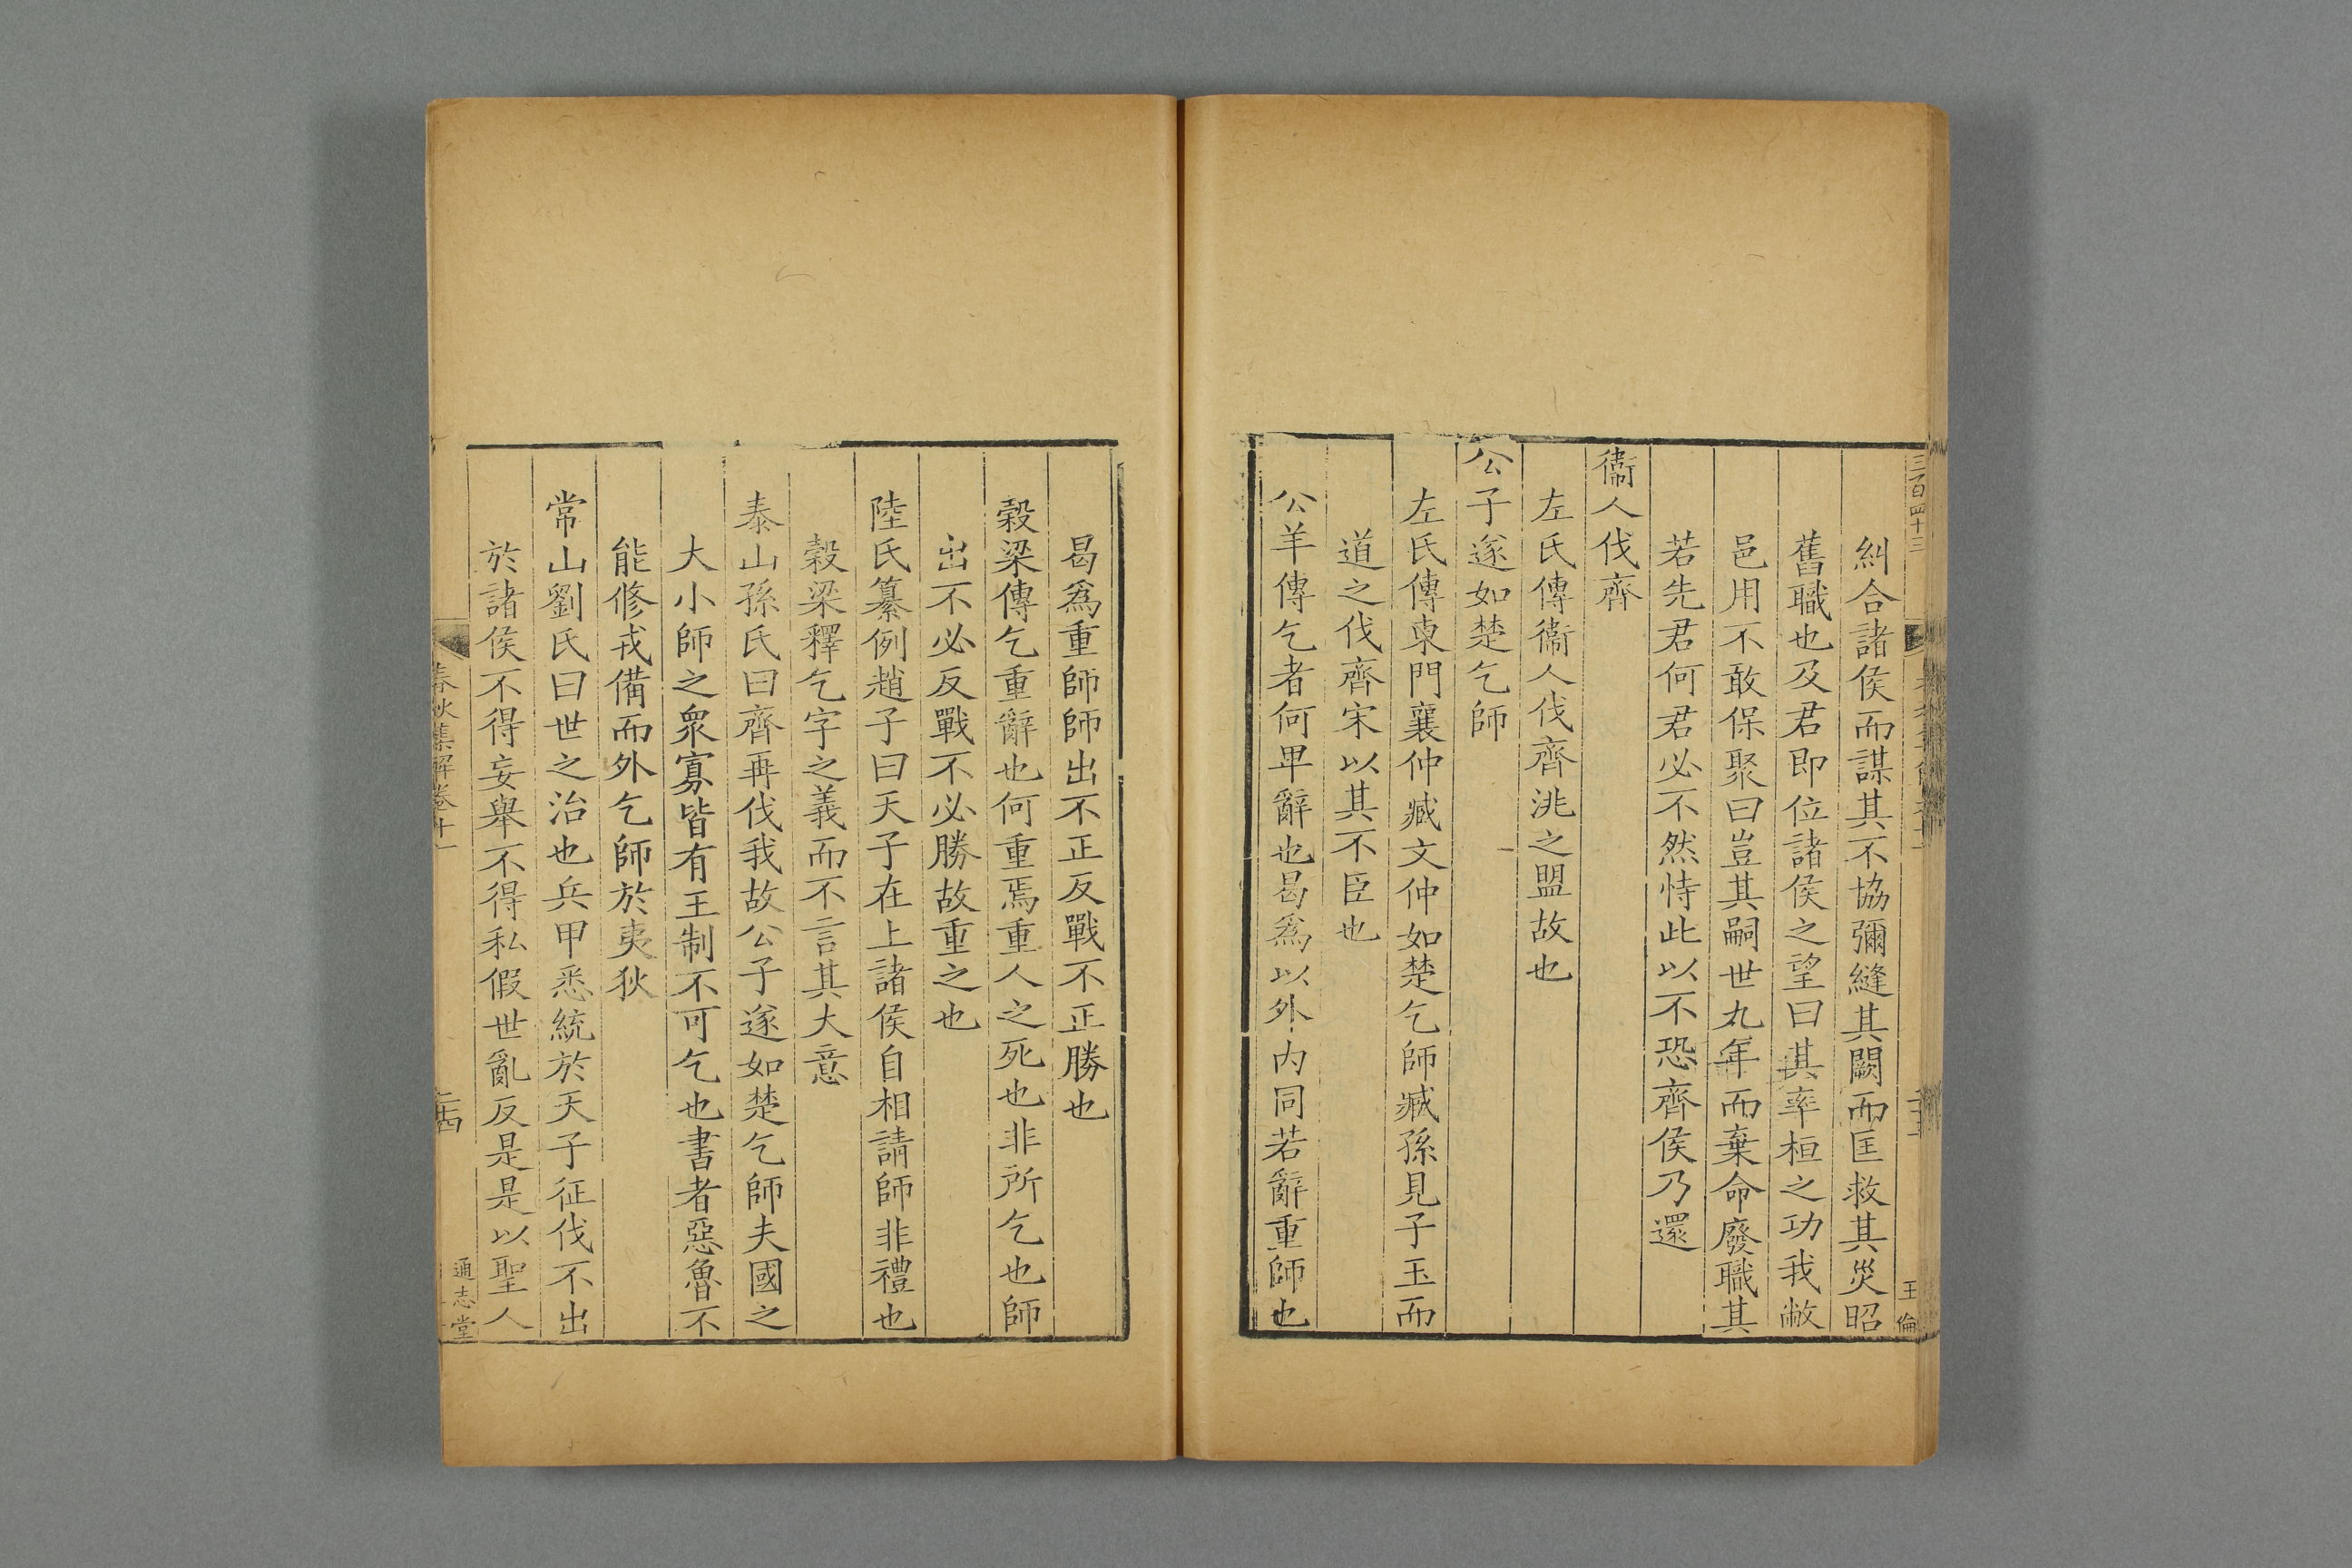 三百四十三
王倫
糾合諸侯而謀其不協彌縫其闕而匡救其災昭
舊職也及君即位諸侯之望曰其率桓之功我敝
邑用不敢保聚曰豈其嗣世九年而棄命廢職其
若先君何君必不然恃此以不恐齊侯乃還
衞人伐齊
左氏傳衞人伐齊洮之盟故也
公子遂如楚乞師
左氏傳東門襄仲臧文仲如楚乞師臧孫見子玉而
道之伐齊宋以其不臣也
公羊傳乞者何卑辭也曷爲以外內同若辭重師也
曷爲重師師出不正反戰不正勝也
穀梁傳乞重辭也何重焉重人之死也非所乞也師
出不必反戰不必勝故重之也
陸氏纂例趙子曰天子在上諸侯自相請師非禮也
穀梁釋乞字之義而不言其大意
泰山孫氏曰齊再伐我故公子遂如楚乞師夫國之
大小師之衆寡皆有王制不可乞也書者惡魯不
能修戎備而外乞師於夷狄
常山劉氏曰世之治也兵甲悉統於天子征伐不出
於諸侯不得妄舉不得私假世亂反是是以聖人
春秋集解卷十一
二十四
通志堂